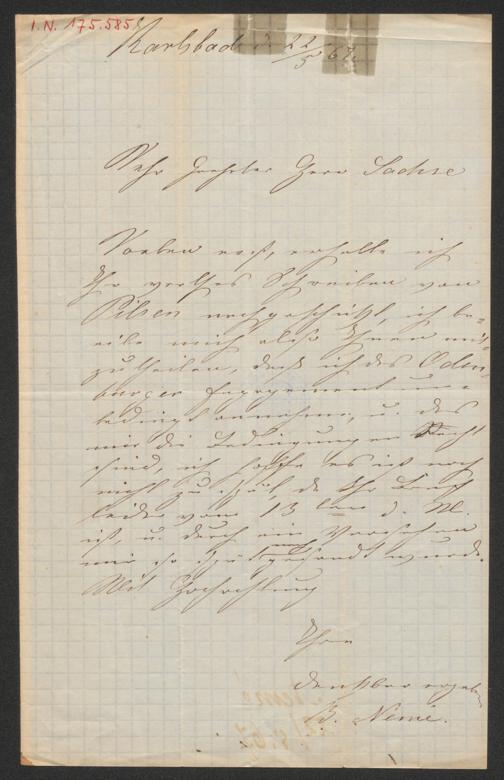 I.N. 175.585
Karlsbad d. 22/5 67.
Sehr geehrter Herr Sachse
Soeben erst, erhalte ich
Ihr werthes Schreiben von
Pilsen nachgeschickt, ich be-
eile mich also Ihnen mit-
zutheilen, daß ich das Oden-
burger Engagement un-
bedingt annehme, u. das
mir die Bedingungen Recht
sind, ich hoffe es ist noch
nicht zu spät da Ihr Brief
leider vom 13ten d. M.
ist, u. durch ein Versehen
mir so spät nachgesandt wurde.
Mit Hochachtung
Ihr
dankbar ergeben
Nemé.